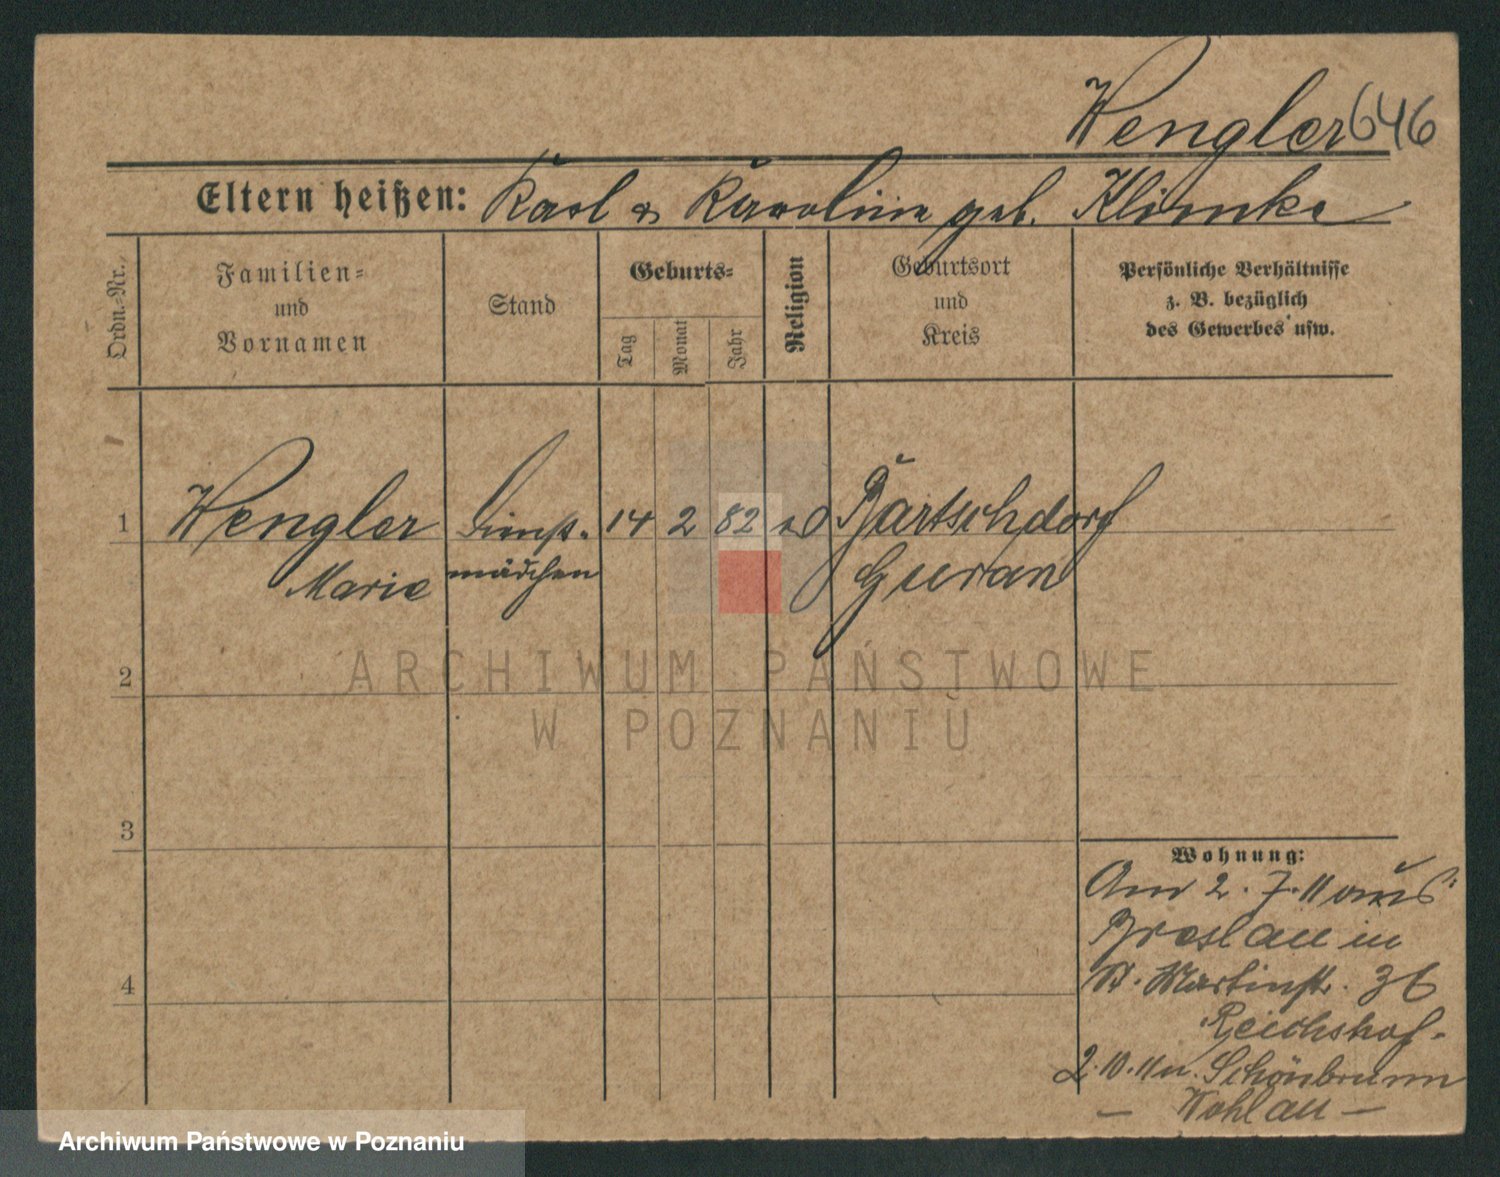 Wengler 646
Eltern heißen: Karl & Karoline geb. Klimke
Ordn.-Nr.
Familien-
und
Vornamen
Stand
Geburts-
Tag
Monat
Jahr
Religion
Geburtsort
und
Kreis
Persönliche Verhältnisse
z. B. bezüglich
des Gewerbes usw.
1 Wengler Dienst- 14 2 82 Bartschdorf
Marie mädchen Guran
2
3
4
Wohnung:
Am 2.7.11 aus
Breslau in
St. Martinstr. 36
Reichshof-
2.10.11 n. Schönbrunn
— Wohlau —
ARCHIWUM PAŃSTWOWE
W POZNANIU
Archiwum Państwowe w Poznaniu